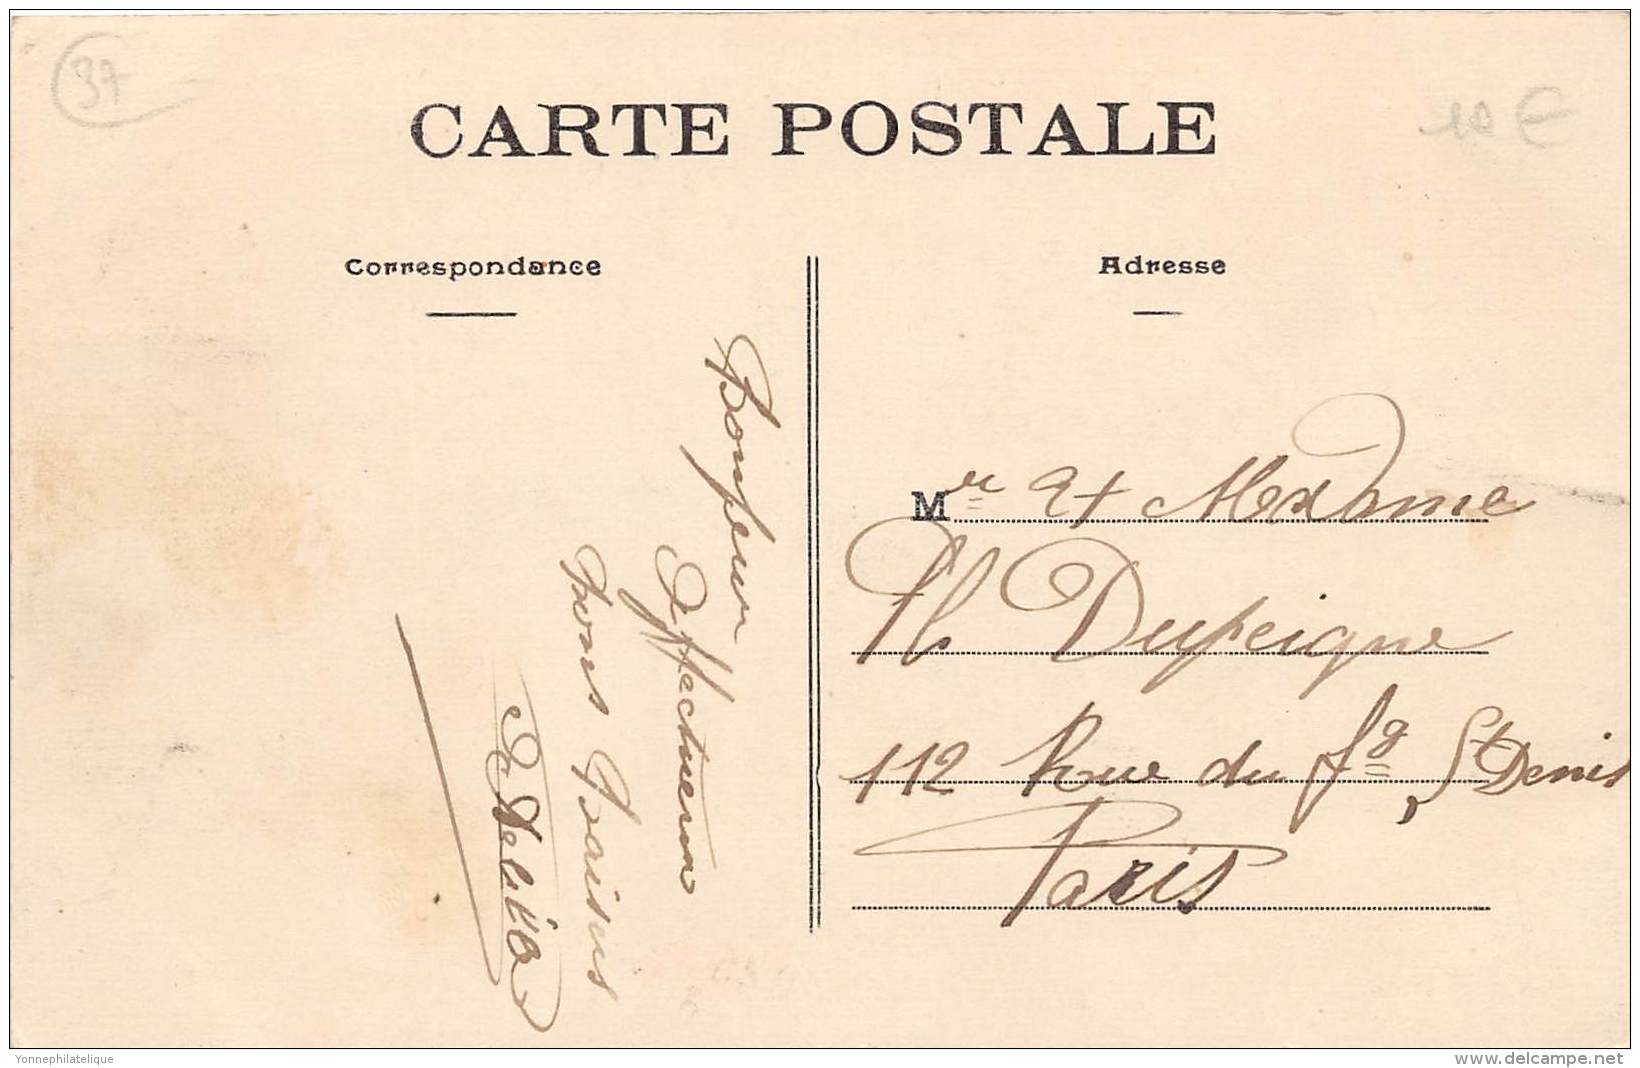 37
10 €
CARTE POSTALE
Correspondance
Adresse
Bonjour
Affectueux
bons Baisers
Mr et Madame
Ph Dupeigne
112 Rue du fg St Denis
Paris
Yonnephilatelique
www.delcampe.net